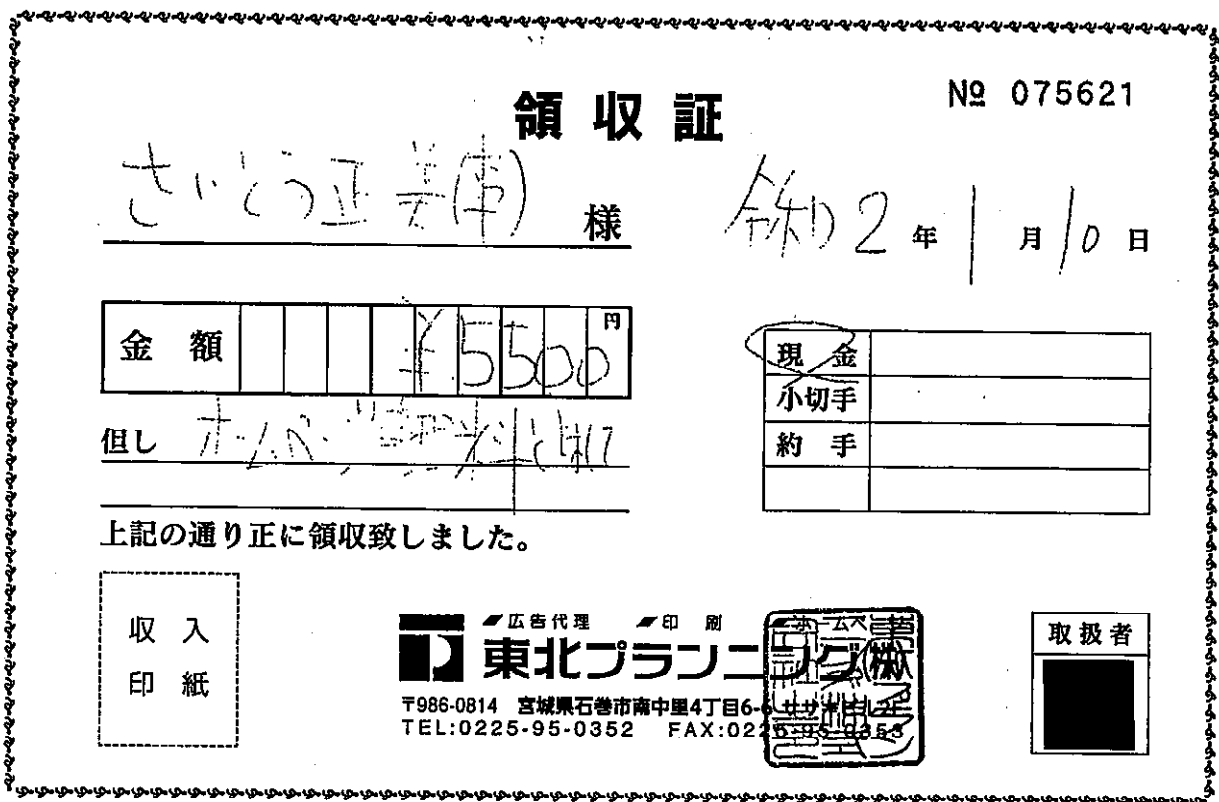 領収証
№ 075621
さいとう正美(事) 様
令和 2 年 1 月 10 日
金額 ¥5500 円
但し ホームページ として
上記の通り正に領収致しました。
現金
小切手
約手
収入
印紙
広告代理 印刷 ホームペ
東北プランニング(株)
〒986-0814 宮城県石巻市南中里4丁目6-6 ササキビル2F
TEL:0225-95-0352 FAX:0225-95-0353
取扱者